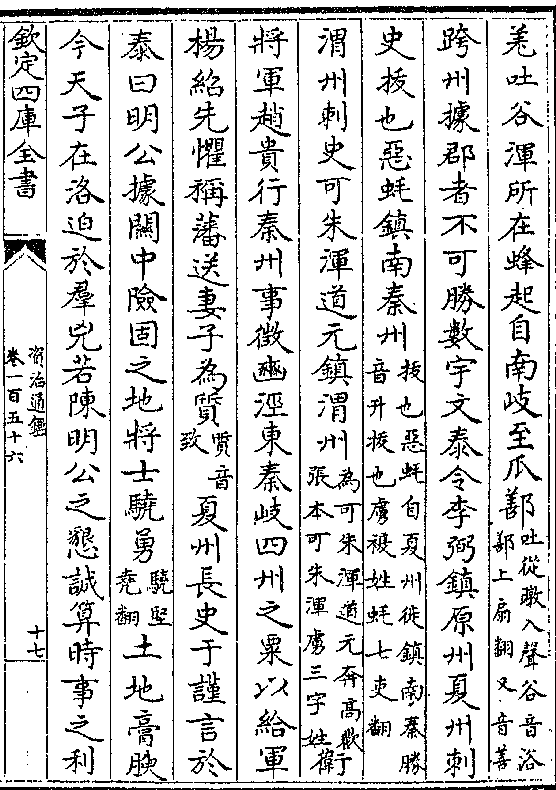 羗吐谷渾所在蜂起自南岐至瓜鄯吐從暾入聲谷音浴鄯上扇翻又音善
跨州據郡者不可勝數宇文泰令李弼鎮原州夏州刺
史拔也惡蚝鎮南秦州拔也惡蚝自夏州徙鎮南秦勝音升拔也虜複姓蚝七吏翻
渭州刺史可朱渾道元鎮渭州為可朱渾道元奔高歡張本可朱渾虜三字姓衛
將軍趙貴行秦州事徵豳涇東秦岐四州之粟以給軍
楊紹先懼稱藩送妻子為質質音致夏州長史于謹言於
泰曰明公據關中險固之地將士驍勇驍堅堯翻土地膏腴
今天子在洛迫於羣兇若陳明公之懇誠算時事之利
欽定四庫全書
資治通鑑
卷一百五十六
十七